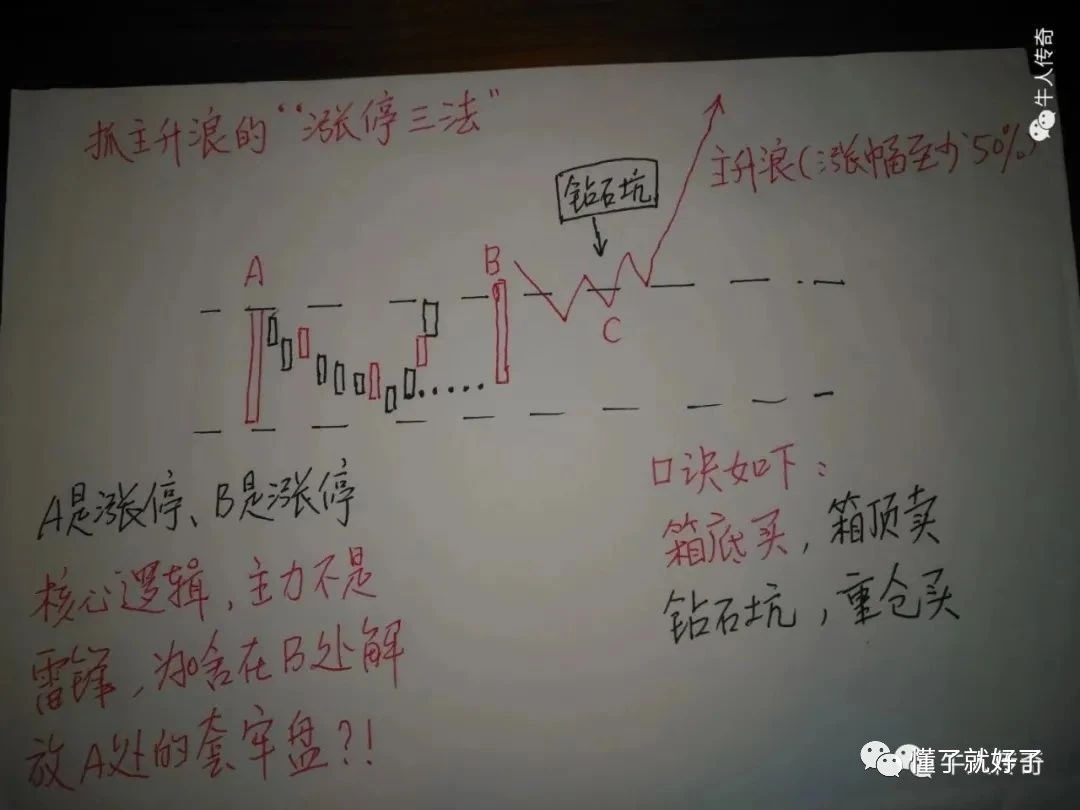 牛人传奇
抓主升浪的“涨停三法”
主升浪(涨幅至少50%)
钻石坑
A
B
C
A是涨停、B是涨停
核心逻辑,主力不是
雷锋,为啥在B处解
放A处的套牢盘?!
口诀如下:
箱底买,箱顶卖
钻石坑,重仓买
懂了就好了